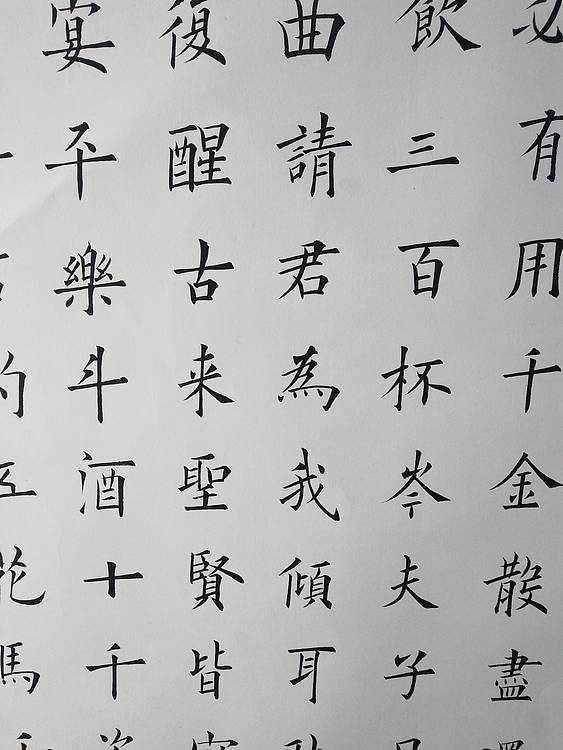 必有用千金散盡
飲三百杯岑夫子
曲請君為我傾耳
復醒古来聖賢皆
宴平樂斗酒十千
五花馬